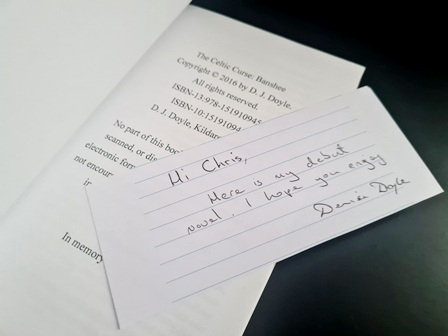 The Celtic Curse: Banshee
Copyright © 2016 by D. J. Doyle.
All rights reserved.
ISBN-13:978-151910945
ISBN-10:15191094
D. J. Doyle, Kildare
No part of this boo
scanned, or dis
electronic form
not encour
In memory
Hi Chris,
Here is my debut
novel. I hope you enjoy
Denise Doyle